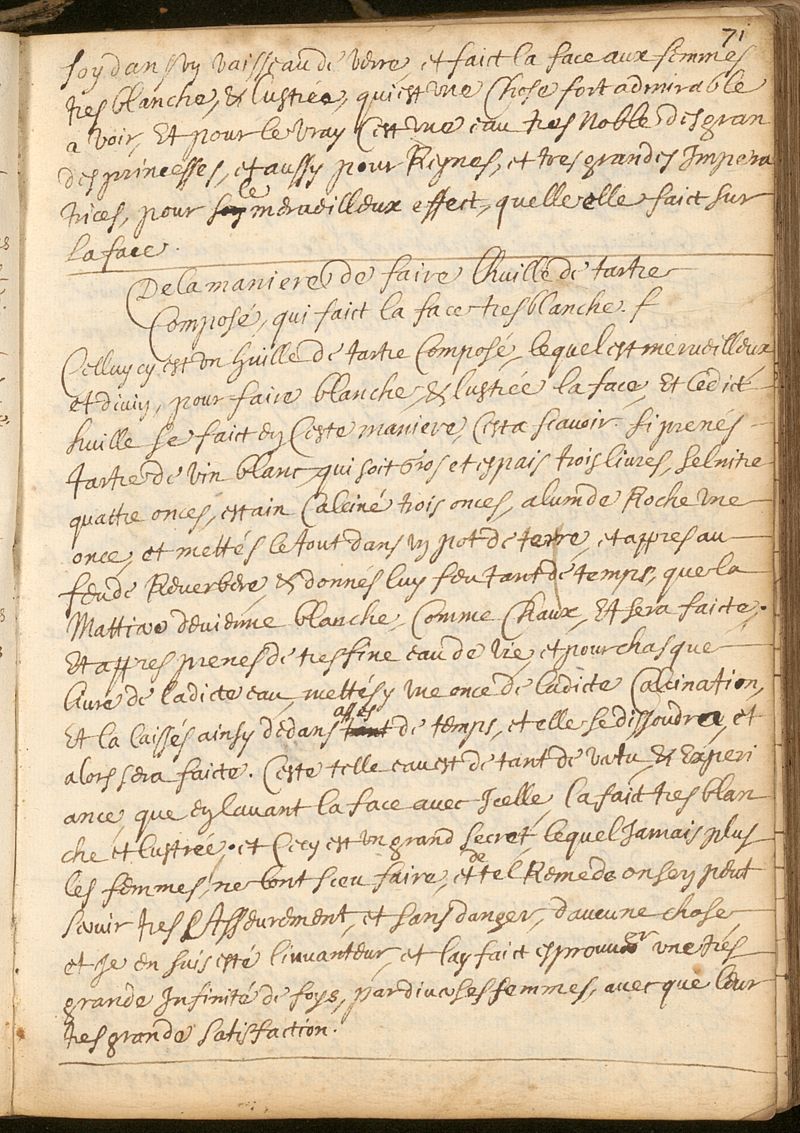 71
soy dans vn vaisseau de verre, et faict la face aux femmes
tres blanche, & lustrée, qui est vne Chose fort admirable
a voir, Et pour le vray C'est vne eau tres Noble des gran
des princesses, et aussy pour Reynes, et tres grandes Impera
trices, pour le merveilleux effect, quelle elle faict sur
la face.
De la maniere de faire lhuille de tartre
Composé, qui faict la face tres blanche.
Celluy cy est vn huille de tartre Composé, lequel est merveilleux
et divin, pour faire blanche, & lustrée la face, Et Ledict
huille se faict en Ceste maniere, C'est a scavoir. Si prenés
tartre de vin blanc qui soit Gros et espais trois livres, selnitre
quattre onces, estain Calciné trois onces, alum de Roche vne
once, et mettés le tout dans vn pot de terre, et appres au
feu de Reverbere, & donnés luy feu tant de temps, que la
Mattiere devienne blanche, Comme Chaux, Et sera faicte.
Et appres prenes de tres fine eau de vie, et pour chasque
livre de ladicte eau, mettés y vne once de ladicte Calcination,
Et la laissés ainsy dedans assés de temps, et elle se dissoudra, et
alors sera faicte. Ceste telle eau est de tant de vertu, & Experi
ance, que en lavant la face avec Icelle, la faict tres blan
che et lustrée. et Cecy est vn grand secret, lequel Jamais plus
les femmes, ne l'ont sceu faire, et de tel Remede on sen peut
servir tres Asseurement, et sans danger, daucune chose
et Je en suis esté linvanteur, et lay faict esprouver vne tres
grande Infinité de foys, par diverses femmes, avec que leur
tres grande satisfaction.